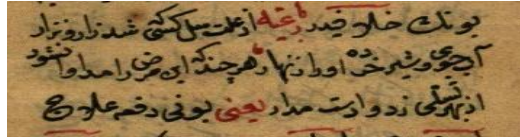 بونك خلا فيدر رعيه از علت سل كشتى شد زار و نزار
آب جوى و شير خر ده او را زنهار هر چند كه اين مرض را مداوا نشود
از بهر تسلى زد و ادست مدار يعنى بونى دفعه علاج